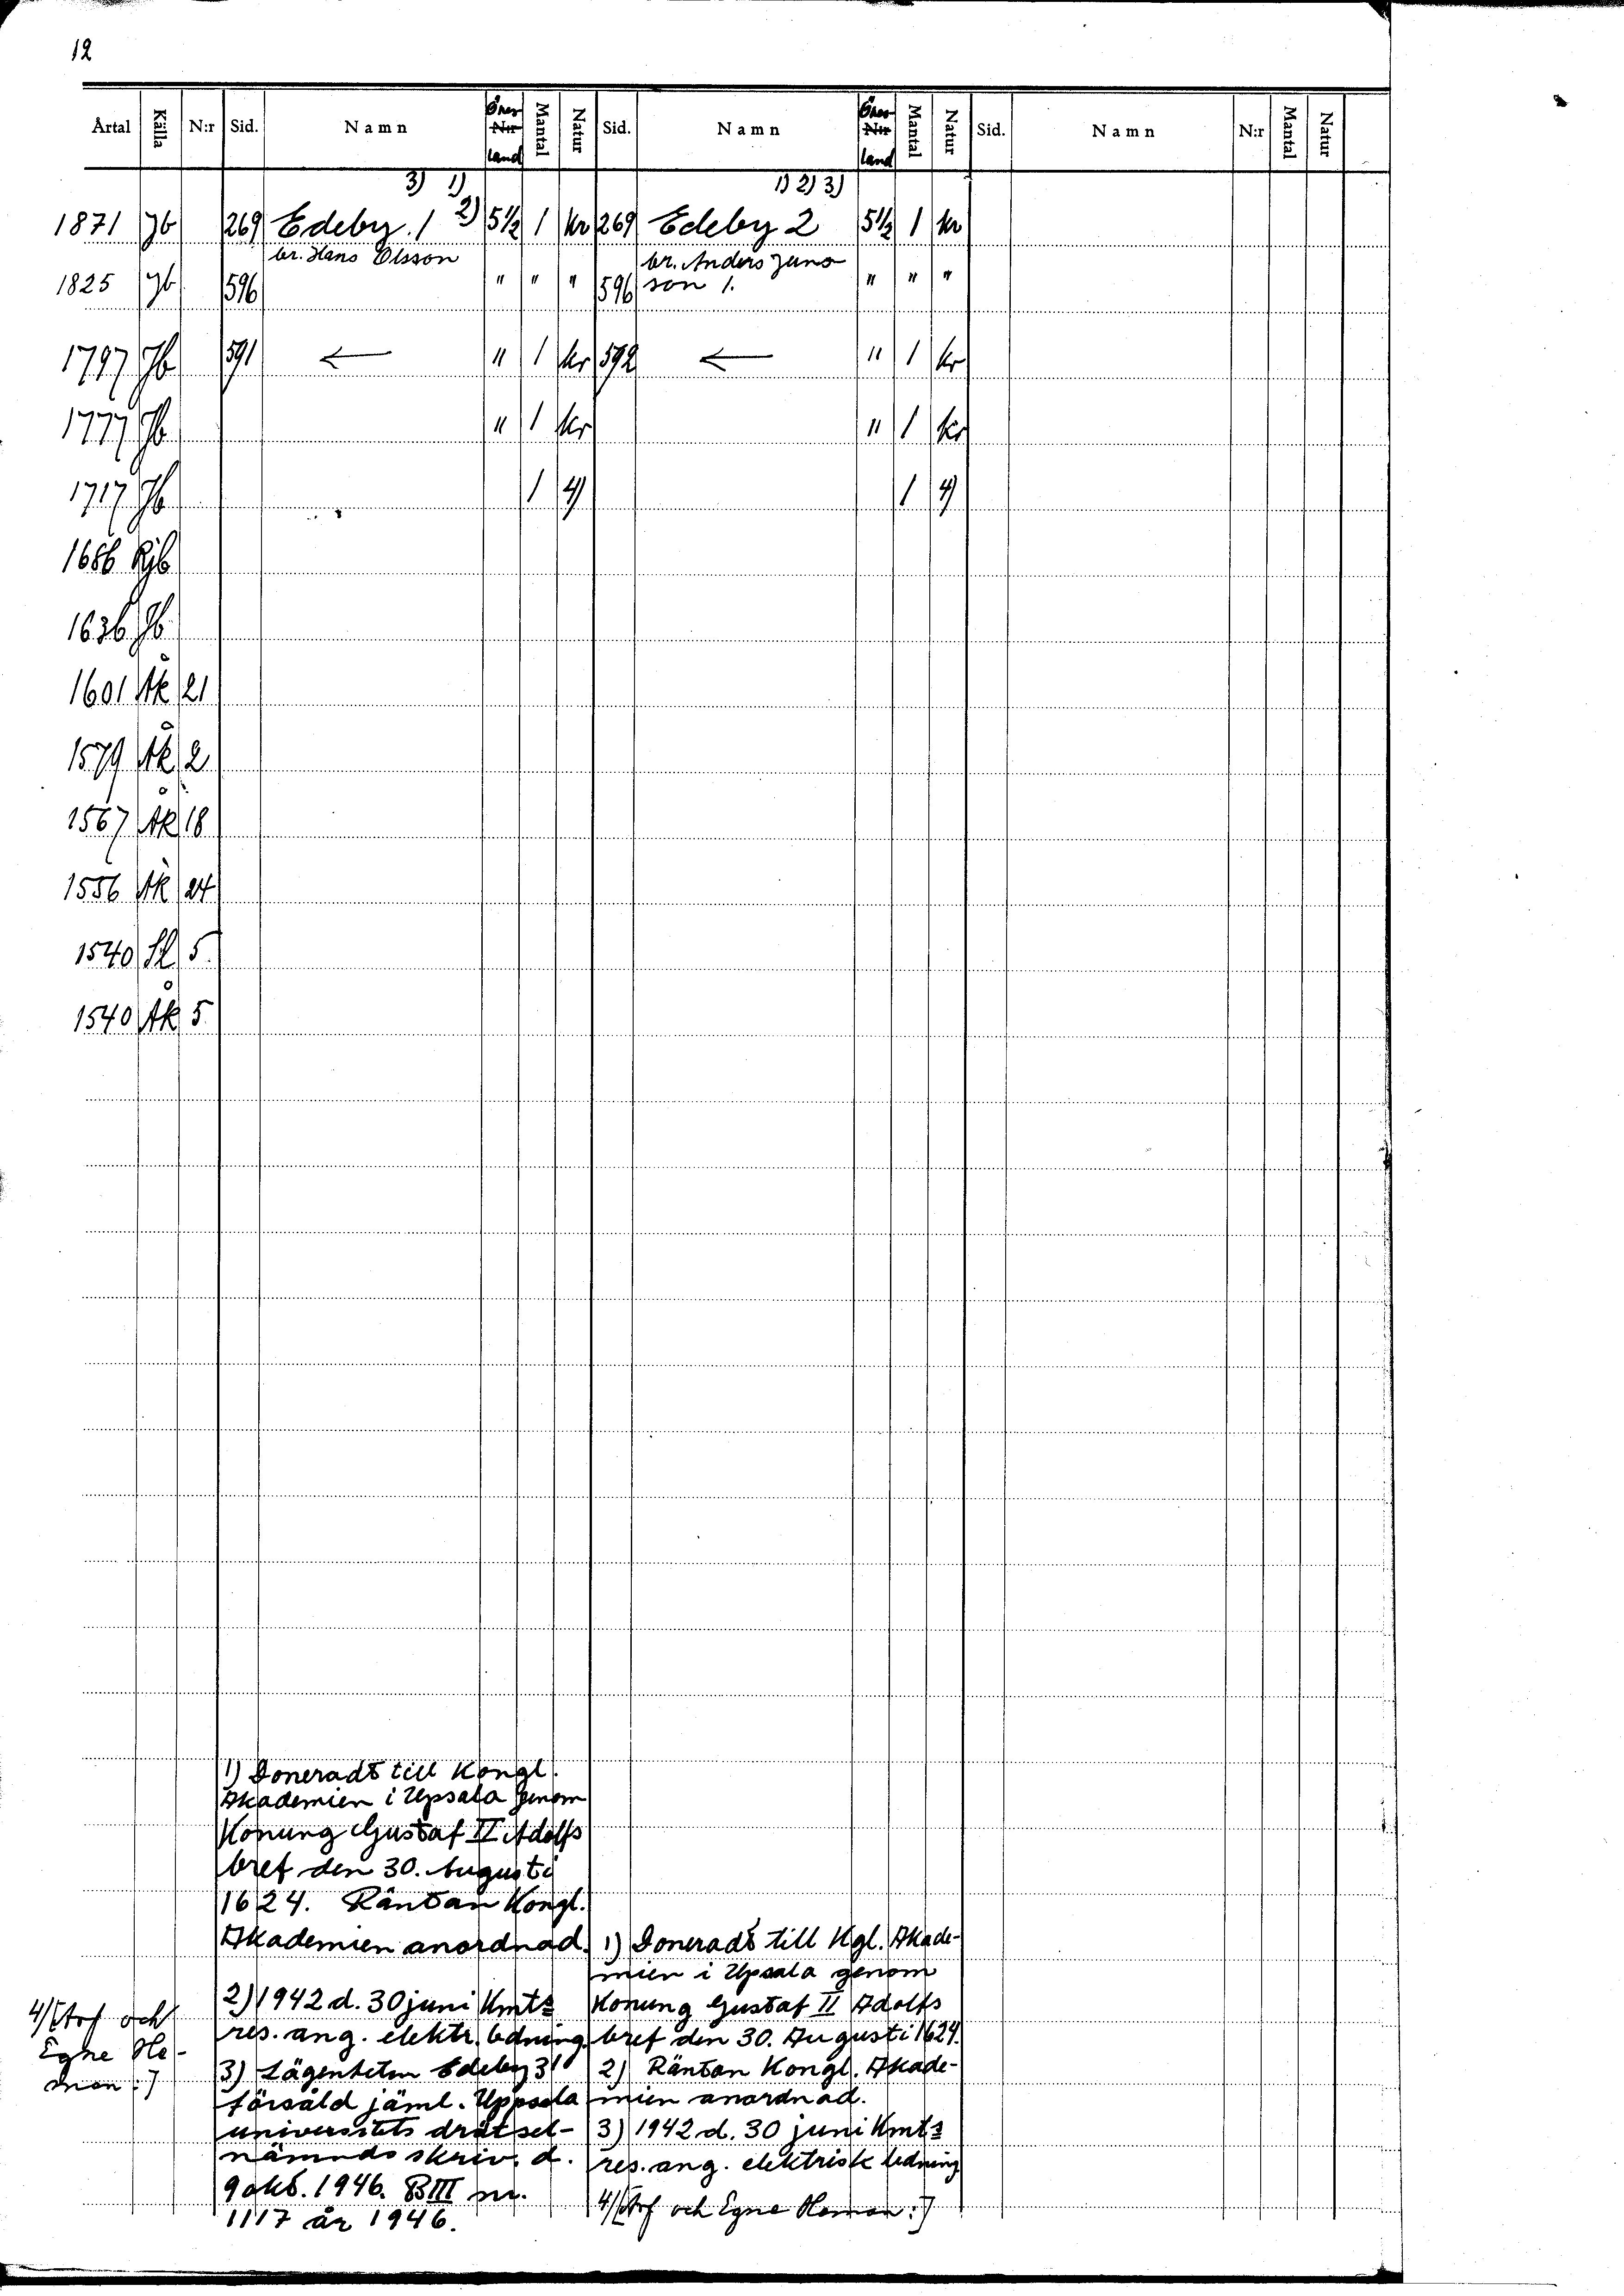 12
Årtal Källa N:r Sid. Namn Öres land Mantal Natur Sid. Namn Öres land Mantal Natur Sid. Namn N:r Mantal Natur
3) 1) 1) 2) 3)
1871 Jb 269 Edeby 1 2) 5 1/2 1 kr 269 Edeby 2 5 1/2 1 kr
br. Hans Olsson br. Anders Jans
1825 Jb 596 " " " 596 son 1. " " "
1797 Jb 591 ← " 1 kr 592 ← " 1 kr
1777 Jb " 1 kr " 1 kr
1717 Jb 1 4) 1 4)
1686 Rjb
1636 Jb
1601 Åk 21
1579 Åk 2
1567 Åk 18
1556 Åk 24
1540 Sl 5.
1540 Åk 5.
1) Doneradt till Kongl.
Akademien i Upsala genom
Konung Gustaf II Adolfs
bref den 30. Augusti
1624. Räntan Kongl.
Akademien anordnad.
2) 1942 d. 30 juni Kmts
res. ang. elektr. ledning.
3) Lägenheten Edeby 3¹
försåld jäml. Uppsala
universitets drätsel-
nämnds skriv. d.
9 okt. 1946. BIII nr.
1117 år 1946.
1) Doneradt till Kgl. Akade-
mien i Upsala genom
Konung Gustaf II Adolfs
bref den 30. Augusti 1624.
2) Räntan Kongl. Akade-
mien anordnad.
3) 1942 d. 30 juni Kmts
res. ang. elektrisk ledning
4/[Arf och Egne Heman:]
4/[Arf och
Egne He-
man:]